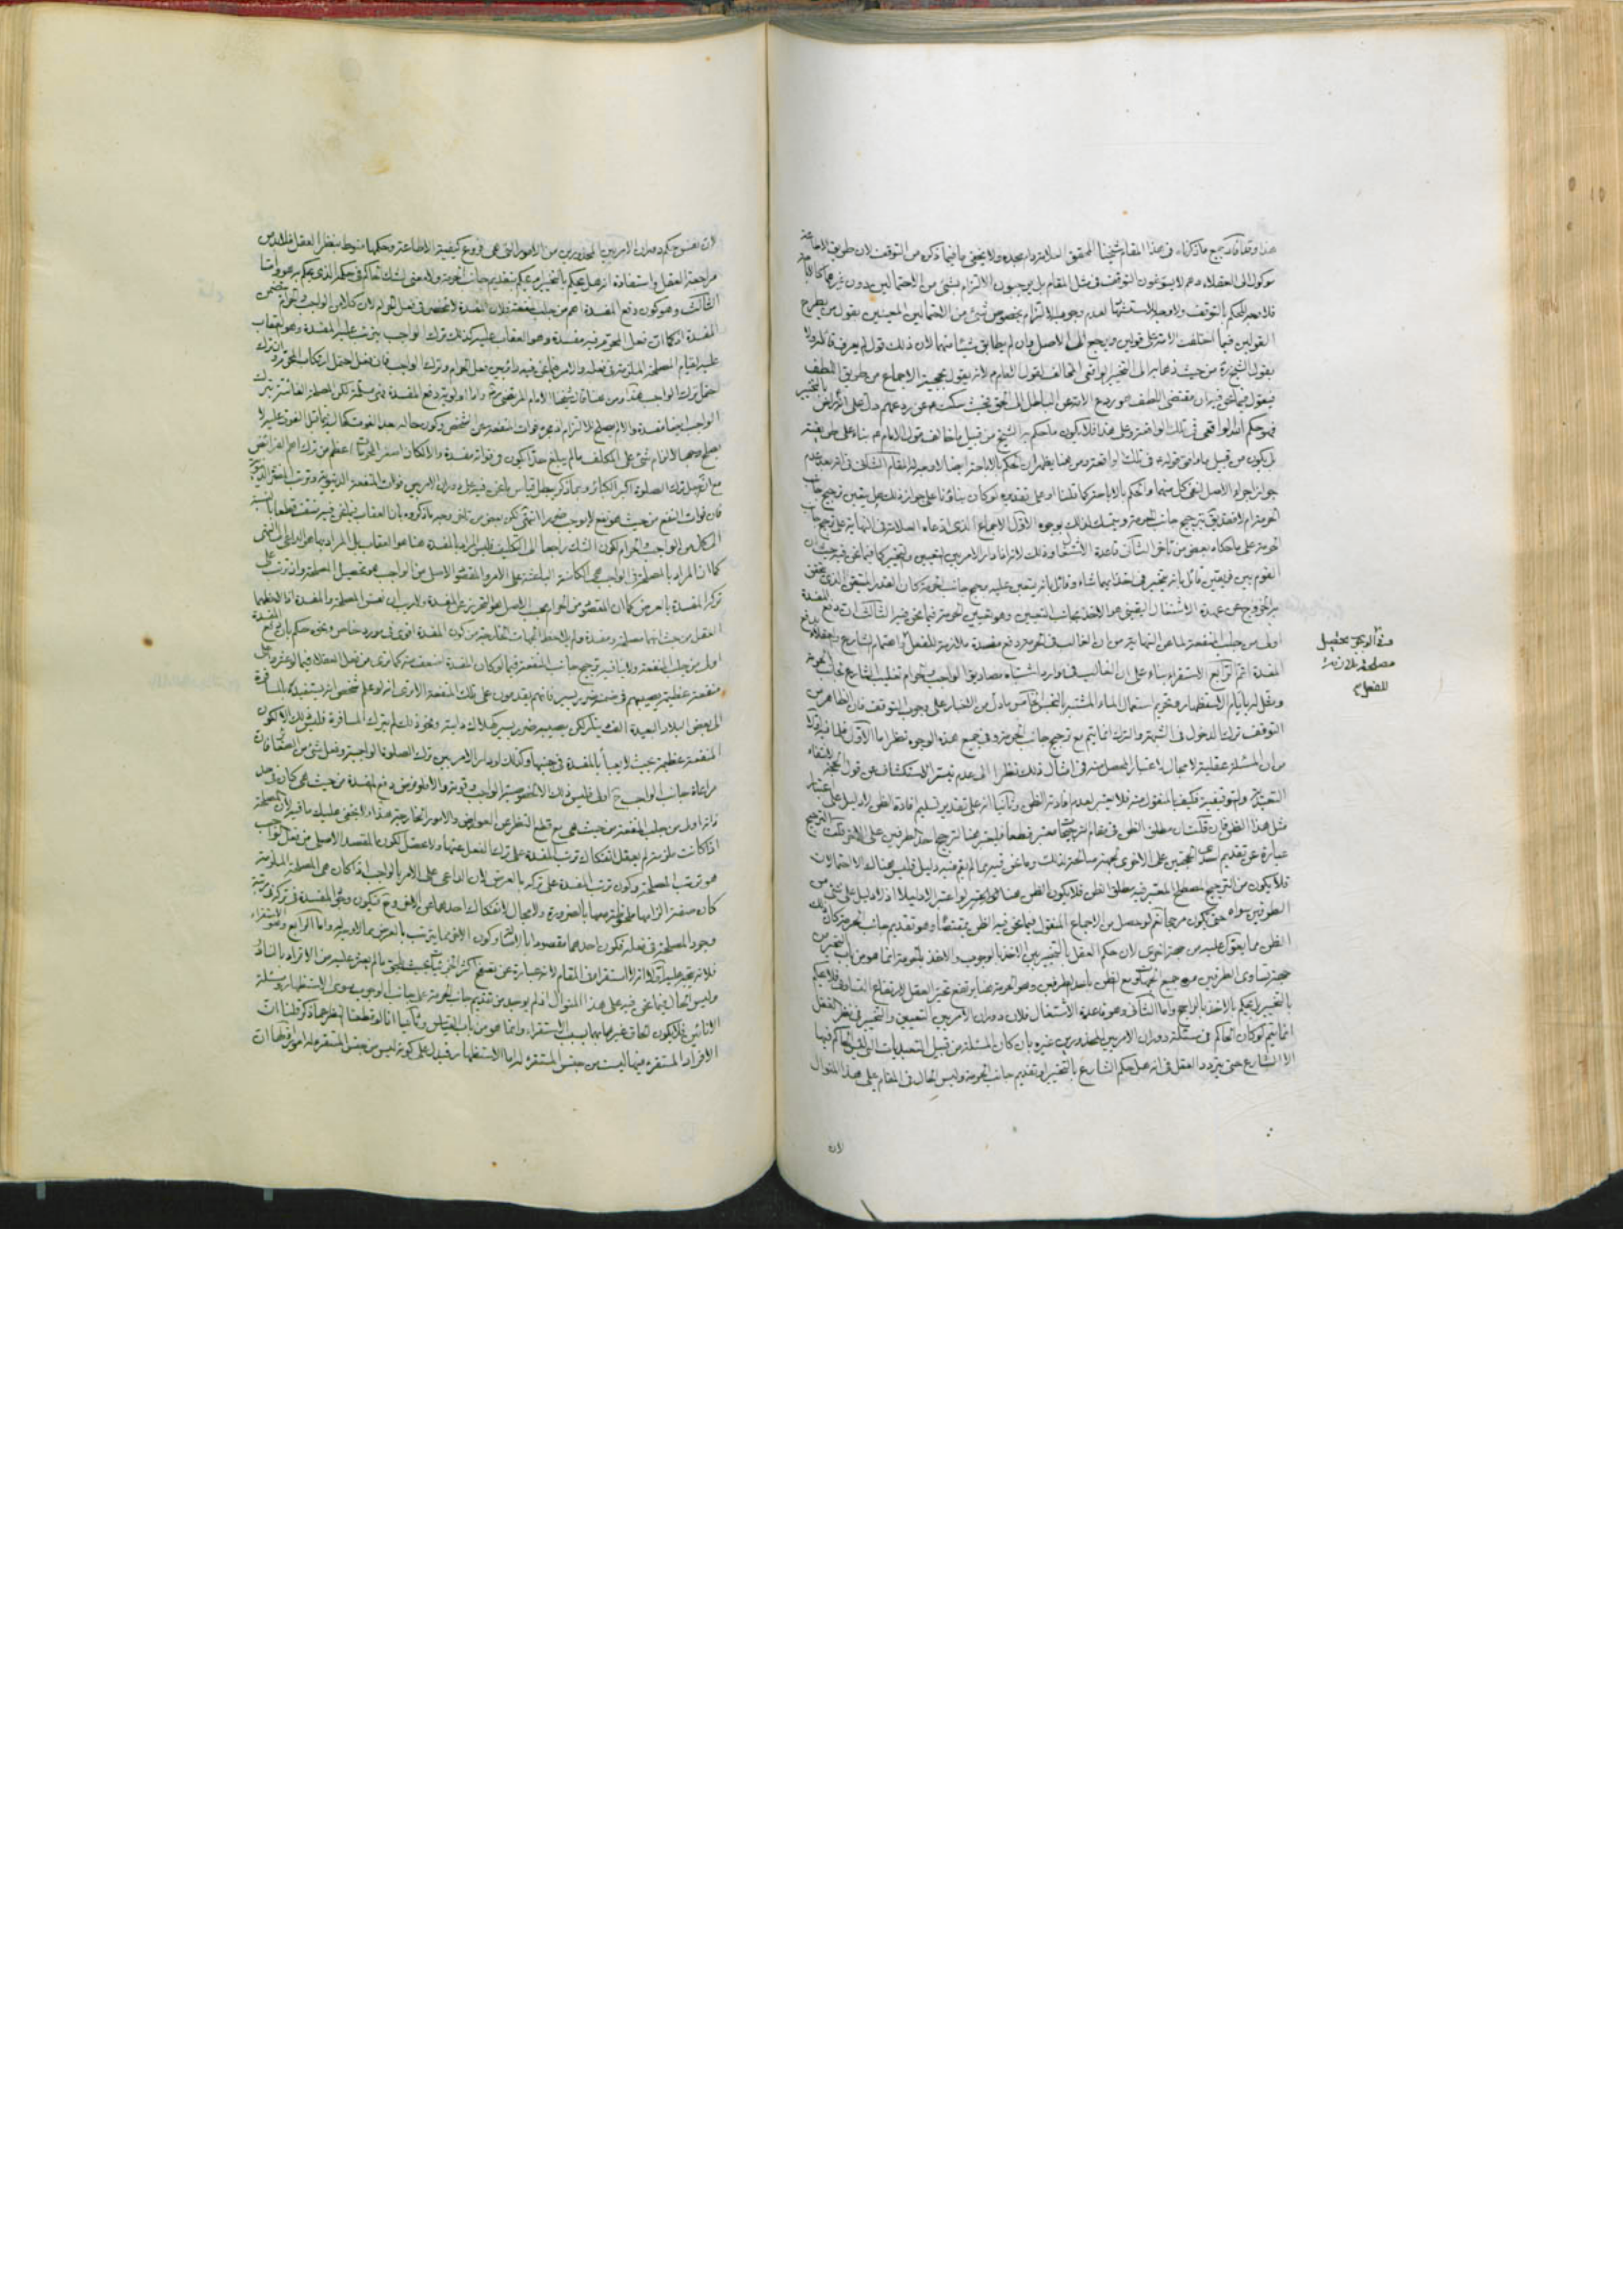 هذا وقد افاد جميع ما ذكرناه فى هذا المقام شيخنا المحقق العلامة دام مجده ولا يخفى ما فيما ذكره من التوقف لان طريق الاطاعة
موكول الى العقلاء وهم لا يسوّغون التوقف فى مثل المقام بل يوجبون الالتزام بشئ من الاحتمالين بدون
فلا معنى للحكم بالتوقف ولا وجه لعدم وجوب الالتزام بخصوص شئ من الاحتمالين المعينين بقول من يطرح
القولين فيما اختلفت الامة على قولين ويرجع الى الاصل وان لم يطابق شيئا منهما لان ذلك قول لم يعرف قائله ولا
بقول الشيخ ره من حيث ذهابه الى التخيير الواقعى المخالف لقول المعصوم لانه يقول بحجية الاجماع من طريق اللطف
فيقول فيما نحن فيه ان مقتضى اللطف هو ردع الامة عن الباطل الى الحق بحيث سكت عن ردعهم دل على
فهو حكم الله الواقعى فى تلك الواقعة وعلى هذا فلا يكون ما حكم به الشيخ من قبيل ما خالف قول الامام بناء على طريقته
بل يكون من قبيل ما وافق قوله فى تلك الواقعة ومن هنا يظهر ان الحكم بالاباحة ايضا لا وجه له
جواز اجراء الاصل لنفى كل منهما والحكم بالاباحة كما قلنا او على تقديره لو كان بناؤنا على جواز ذلك هل يتعين ترجيح جانب
الحرمة ام لا فقد يق بترجيح جانب الحرمة ويتمسك لذلك بوجوه الاول الاجماع الذى ادعاه العلامة فى النهاية على ترجيح جانب
الحرمة على ما حكاه بعض من تاخر الثانى قاعدة الاشتغال وذلك لانه اذا دار الامر بين التعيين والتخيير كما فيما نحن فيه حيث ان
القوم بين فريقين قائل بانه يتخير فى اخذ ايهما شاء وقائل بانه يتعين عليه ترجيح جانب الحرمة كان القدر المتيقن الذى يتحقق
به الخروج عن عهدة الاشتغال اليقينى هو الاخذ بجانب التعيين وهو تعيين الحرمة فيما نحن فيه الثالث ان دفع المفسدة
اولى من جلب المنفعة لما عن النهاية من ان الغالب فى الحرمة دفع مفسدة ملازمة للفعل واهتمام الشارع والعقلاء بدفع
المفسدة اتم الرابع الاستقراء بناء على ان الغالب فى موارد اشتباه مصاديق الواجب والحرام تغليب الشارع جانب الحرمة
ومثل له بايام الاستظهار وتحريم استعمال الماء المشتبه بالنجس الخامس ما دل من الاخبار على وجوب التوقف فان الظاهر من
التوقف ترك الدخول فى الشبهة والترك انما يتم مع ترجيح جانب الحرمة وفى جميع هذه الوجوه نظر اما الاول فلما فيه اولا
من ان المسئلة عقلية لا مجال لاعتبار المحصل منه فى امثال ذلك نظرا الى عدم تيسر الاستكشاف عن قول الحجة لانتفاء
التعبد ولو توقيفية فكيف بالمنقول منه فلا يعتبر لعدم افادته الظن وثانيا انه على تقدير تسليم افادة الظن لا دليل على اعتبار
مثل هذا الظن فان قلت ان مطلق الظن فى مقام الترجيحات معتبر قطعا فليعتبر هنا لترجيح احد الطرفين على الاخر قلت الترجيح
عبارة عن تقديم احد الحجتين على الاخرى لجهة صالحة لذلك وما نحن فيه مما لم يقم فيه دليل فليس هناك الا احتمالات
فلا يكون من الترجيح المصطلح المعتبر فيه مطلق الظن فلا يكون الظن هنا معتبرا لو اعتبر الا دليلا اذ لا دليل على شئ من
الطرفين سواه حتى يكون مرجحا نعم لو حصل من الاجماع المنقول فيما نحن فيه الظن بمقتضاه وهو تقديم جانب الحرمة كان ذلك
الظن مما يعول عليه من جهة اخرى لان حكم العقل بالتخيير بين الاخذ بالوجوب والاخذ بالحرمة انما هو من باب التحير من
جهة تساوى الطرفين من جميع الجهات ومع الظن باحد الطرفين وهو الحرمة هنا يرتفع تحير العقل لارتفاع التساوى فلا يحكم
بالتخيير بل يحكم بالاخذ بالراجح واما الثانى وهو قاعدة الاشتغال فلان دوران الامر بين التعيين والتخيير فى نظر العقل
انما يتم لو كان الحاكم فى مسئلة دوران الامر بين المحذورين غيره بان كان المسئلة من قبيل التعبديات التى ليس الحاكم فيها
الا الشارع حتى يتردد العقل فى انه هل حكم الشارع بالتخيير او تقديم جانب الحرمة وليس الحال فى المقام على هذا المنوال
لان
وفى الوجوب تحصيل
مصلحة ملازمة
للفعل
لان نفس حكم دوران الامر بين المحذورين من الامور التى هى فروع كيفية الاطاعة وحكمها منوط بنظر العقل فلا بد من
مراجعة العقل واستفادة انه هل يحكم بالتخيير او يحكم بتقديم جانب الحرمة ولا معنى لشك الحاكم فى حكمه الذى يحكم به هو واما
الثالث وهو كون دفع المفسدة اهم من جلب المنفعة فلان المفسدة لا تنحصر فى فعل الحرام لان كلا من الواجب والحرام يتضمن
المفسدة اذ كما ان فعل المحرم فيه مفسدة وهو العقاب عليه كذلك ترك الواجب يترتب عليه المفسدة وهو العقاب
عليه لقيام المصلحة الملزمة فى فعله والامر فيما نحن فيه دائر بين فعل الحرام وترك الواجب فان فعل احتمل ارتكاب المحرم وان ترك
احتمل ترك الواجب هذا ومن هنا قال شيخنا الامام المرتضى ره واما اولوية دفع المفسدة فهى مسلمة لكن المصلحة الفائتة بترك
الواجب ايضا مفسدة والا لم يصلح للالزام اذ مجرد فوات المنفعة عن الشخص وكون حاله بعد الفوت كحاله فيما قبل الفوت عليه لا
يصلح وجها لالزام شئ على المكلف ما لم يبلغ حدا يكون فى فواته مفسدة والا لكان اصغر المحرمات اعظم من ترك اهم الفرائض
مع انه جعل ترك الصلوة اكبر الكبائر وبما ذكر يبطل قياس ما نحن فيه على دوران الامر بين فوات المنفعة الدنيوية وترتب المضرة الدنيوية
فان فوات النفع من حيث هو نفع لا يوجب ضررا انتهى لكن بعض من تاخر وجه ما ذكروه بان العقاب فيما نحن فيه منتف قطعا بالنسبة
الى كل من الواجب والحرام لكون الشك راجعا الى التكليف فليس المراد بالمفسدة هنا هو العقاب بل المراد بها هو الداعى الى النهى
كما ان المراد بالمصلحة فى الواجب هى الكامنة الباعثة على الامر والمقصود الاصلى من الواجب هو تحصيل المصلحة وان ترتب على
تركه المفسدة بالعرض كما ان المقصود من الحرام بحسب الاصل هو التحرز عن المفسدة ولا ريب ان نفس المصلحة والمفسدة اذا لاحظهما
العقل من حيث انهما مصلحة ومفسدة ولم يلاحظ الجهات الخارجية من كون المفسدة اقوى فى مورد خاص ونحوه حكم بان دفع المفسدة
اولى من جلب المنفعة ولا ينافيه ترجيح جانب المنفعة فيما لو كان المفسدة اضعف منه كما ترى من فعل العقلاء فيما لو عثروا على
منفعة عظيمة يصيبهم فى ضمنه ضرر يسير فانهم يقدمون على تلك المنفعة الا ترى انه لو علم شخص انه يستفيد بالمسافرة
الى بعض البلاد البعيدة الف لكن يصيبه ضرر يسير كهلاك دابته ونحو ذلك لم يترك المسافرة فليس ذلك الا لكون
المنفعة عظيمة بحيث لا يعبأ بالمفسدة فى جنبها وكذلك لو دار الامر بين ترك الصلوة الواجبة وفعل شئ من الصغائر فان
مراعاة جانب الواجب ح اولى فليس ذلك الا لخصوصية الواجب وقوته والا فلو فرض دفع المفسدة من حيث هى كان فى حد
ذاته اولى من جلب المنفعة من حيث هى مع قطع النظر عن العوارض والامور الخارجية هذا ولا يخفى عليك ما فيه لان المصلحة
اذا كانت ملزمة لم يعقل انفكاك ترتب المفسدة على ترك الفعل عنها ولا محصل لكون المقصد الاصلى من فعل الواجب
هو ترتب المصلحة وكون ترتب المفسدة على تركه بالعرض لان الداعى على الامر بالواجب اذا كان هى المصلحة الملزمة
كان صفة الزامها ملحوظة معها بالضرورة ولا مجال لانفكاك احدهما عن الاخر وح فيكون وقوع المفسدة فى تركه فى مرتبة
وجود المصلحة فى فعله فكون احدهما مقصودا بالذات وكون الاخر مما يترتب بالعرض مما لا وجه له واما الرابع وهو الاستقراء
فلانه يتجه عليه اولا انه لا استقراء فى المقام لانه عبارة عن تصفح اكثر الجزئيات بحيث يلحق ما لم يعثر عليه من الافراد بالغالب
وليس الحال فيما نحن فيه على هذا المنوال اذ لم يوجد من تقديم جانب الحرمة على جانب الوجوب سوى الاستظهار ومسئلة
الانائين فلا يكون الحاق غيرهما بهما بسبب الاستقراء وانما هو من باب القياس وثانيا انا لو قطعنا النظر عما ذكر قلنا ان
الافراد المستقرء فيها ليست من جنس المستقرء له اما الاستظهار فيدل على كونه ليس من جنس المستقرء له امور منها ان